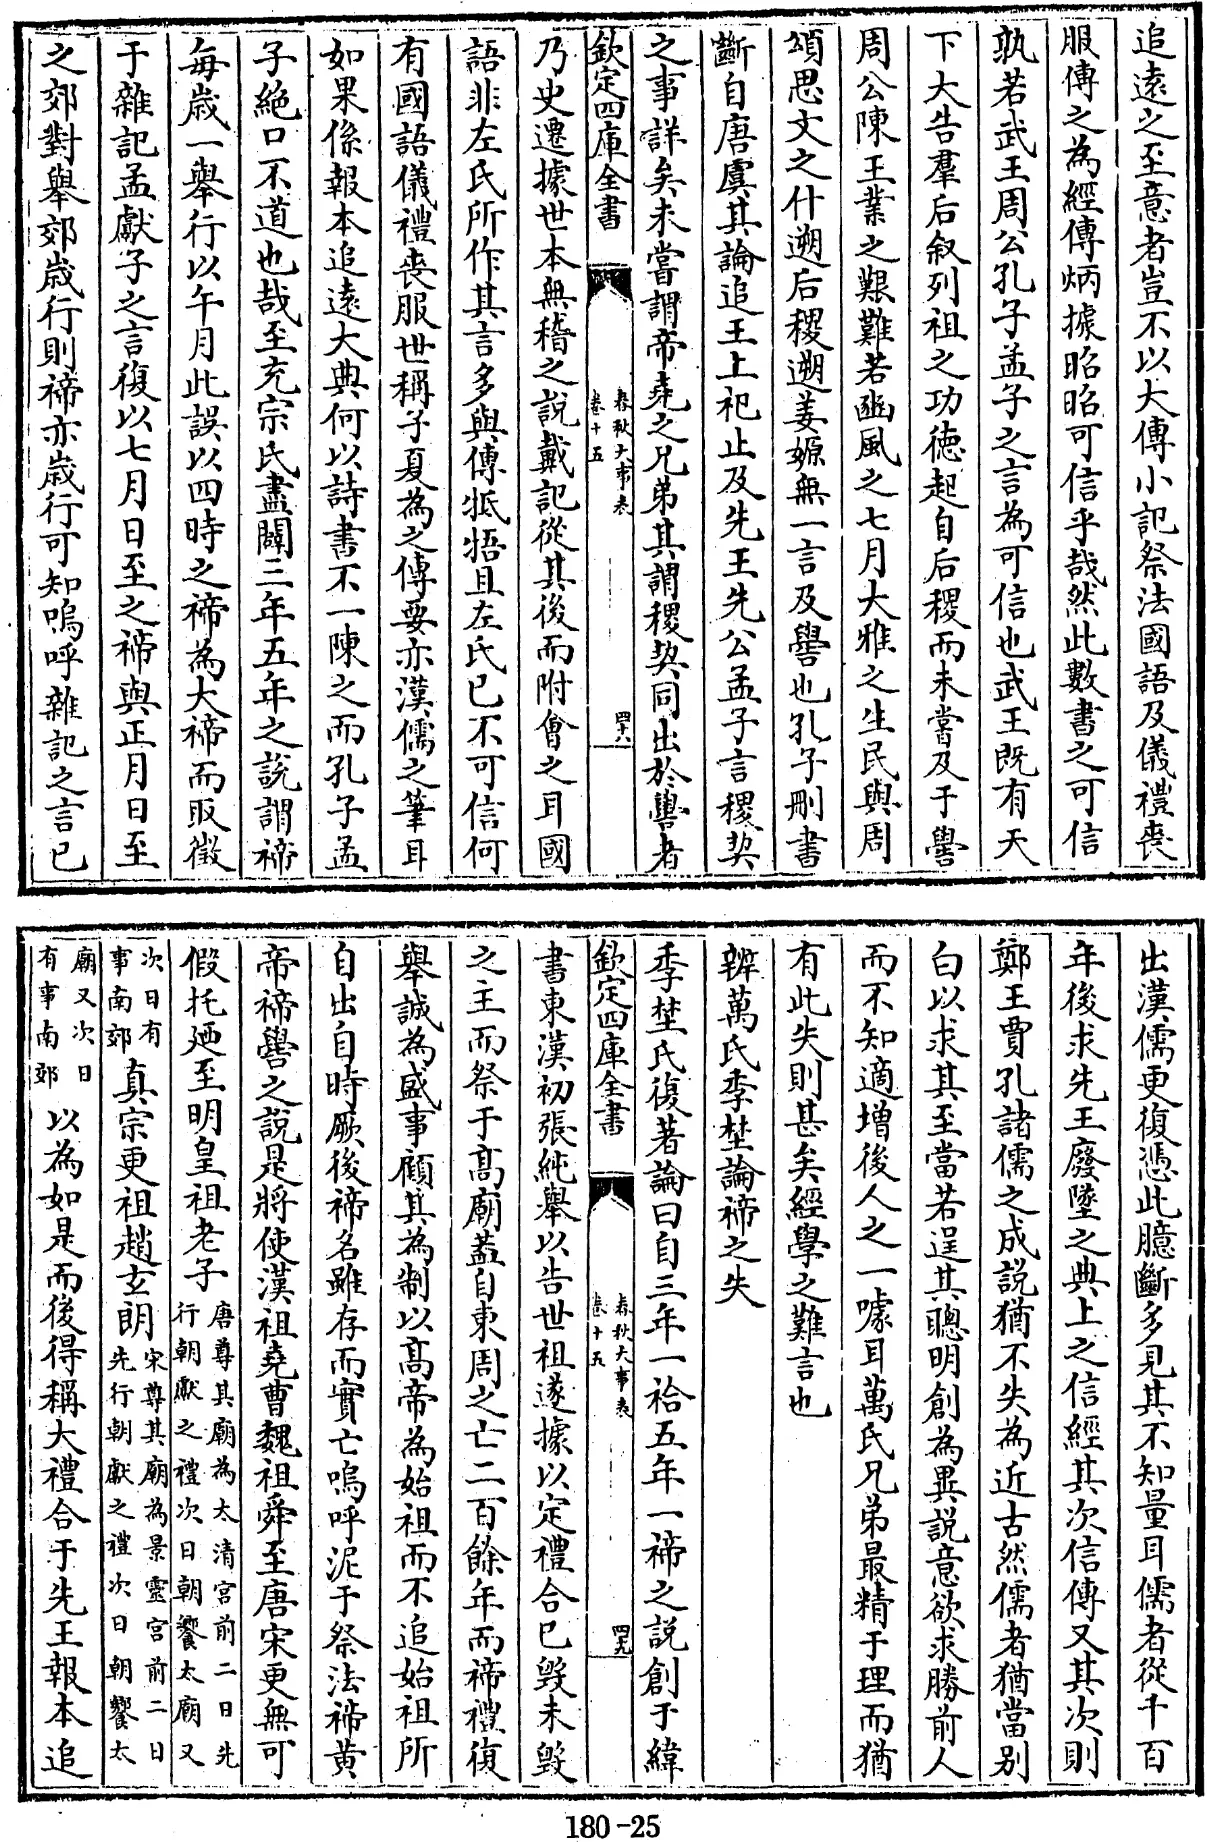 追遠之至意者豈不以大傳小記祭法國語及儀禮喪
服傳之為經傳炳據昭昭可信乎哉然此數書之可信
孰若武王周公孔子孟子之言為可信也武王既有天
下大告羣后叙列祖之功徳起自后稷而未嘗及于嚳
周公陳王業之艱難若豳風之七月大雅之生民與周
頌思文之什遡后稷遡姜嫄無一言及嚳也孔子刪書
斷自唐虞其論追王上祀止及先王先公孟子言稷契
之事詳矣未嘗謂帝堯之兄弟其謂稷契同出於嚳者
欽定四庫全書
春秋大事表
卷十五
四十八
乃史遷據世本無稽之說戴記從其後而附會之耳國
語非左氏所作其言多與傳牴牾且左氏已不可信何
有國語儀禮喪服世稱子夏為之傳要亦漢儒之筆耳
如果係報本追遠大典何以詩書不一陳之而孔子孟
子絶口不道也哉至充宗氏盡闢三年五年之説謂禘
每歲一舉行以午月此誤以四時之禘為大禘而取徵
于雜記孟獻子之言復以七月日至之禘與正月日至
之郊對舉郊歲行則禘亦歲行可知嗚呼雜記之言已
出漢儒更復憑此臆斷多見其不知量耳儒者從千百
年後求先王廢墜之典上之信經其次信傳又其次則
鄭王賈孔諸儒之成説猶不失為近古然儒者猶當别
白以求其至當若逞其聰明創為異説意欲求勝前人
而不知適增後人之一噱耳萬氏兄弟最精于理而猶
有此失則甚矣經學之難言也
辨萬氏季埜論禘之失
季埜氏復著論曰自三年一祫五年一禘之説創于緯
欽定四庫全書
春秋大事表
卷十五
四十九
書東漢初張純舉以告世祖遂據以定禮合已毀未毀
之主而祭于髙廟葢自東周之亡二百餘年而禘禮復
舉誠為盛事顧其為制以髙帝為始祖而不追始祖所
自出自時厥後禘名雖存而實亡嗚呼泥于祭法禘黃
帝禘嚳之説是將使漢祖堯曹魏祖舜至唐宋更無可
假托廼至明皇祖老子唐尊其廟為太清宫前二日先行朝獻之禮次日朝饗太廟又
次日有事南郊真宗更祖趙玄朗宋尊其廟為景靈宫前二日先行朝獻之禮次日朝饗太
廟又次日有事南郊以為如是而後得稱大禮合于先王報本追
180-25